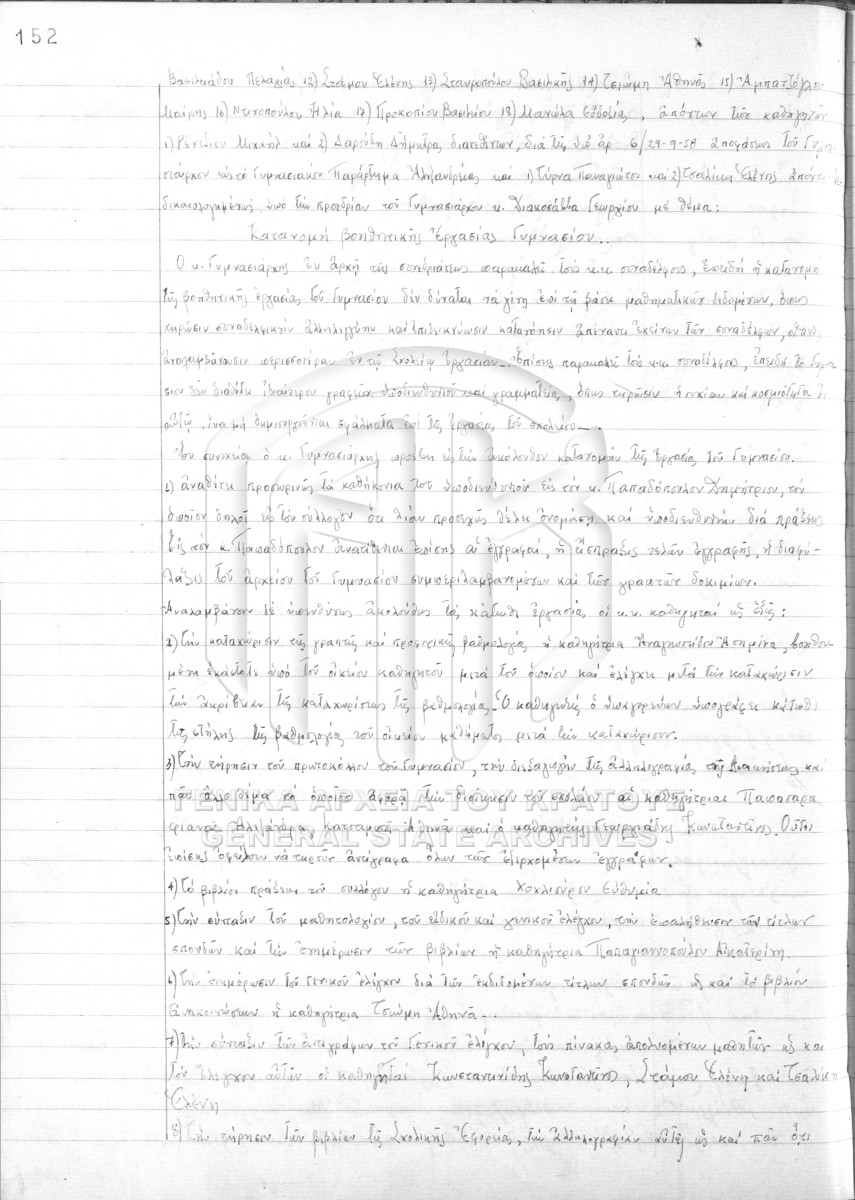 152
Βασιλειάδου Πελαγίας 12) Στάμου Ἑλένης 13) Σταυροπούλου Βασιλικῆς 14) Τσιώμη Ἀθηνᾶς 15) Ἀμπατζόγλου
Μαίρης 16) Ντινοπούλου Ἠλία 17) Προκοπίου Βασιλείου 18) Μανώλα Εὐδοξίας, ἀπόντων τῶν καθηγητῶν
1) Μιχαὴλ καὶ 2) Δαρούδη Δήμητρας διατεθέντων, διὰ τῆς ὑπ' ἀρ. 6/29-9-58 ἀποφάσεως τοῦ Γυμνα-
σιάρχου εἰς τὸ Γυμνασιακὸν Παράρτημα Ἀλεξανδρείας καὶ 1) Παναγιώτου καὶ 2) Τσαλίκη Ἑλένης ἀπόντων
δικαιολογημένως ὑπὸ τὴν προεδρίαν τοῦ Γυμνασιάρχου κ. Διακοσάββα Γεωργίου μὲ θέμα:
Κατανομὴ βοηθητικῆς Ἐργασίας Γυμνασίου..
Ὁ κ. Γυμνασιάρχης ἐν ἀρχῇ τῆς συνεδριάσεως παρακαλεῖ τοὺς κ.κ. συναδέλφους, ἐπειδὴ ἡ κατανομὴ
τῆς βοηθητικῆς ἐργασίας τοῦ Γυμνασίου δὲν δύναται νὰ γίνῃ ἐπὶ τῇ βάσει μαθηματικῶν δεδομένων, ὅπως
τηρῶσιν συναδελφικὴν ἀλληλεγγύην καὶ ἐπιδεικνύωσιν κατανόησιν ἀπέναντι ἐκείνων τῶν συναδέλφων, οἵτινες
ἀναλαμβάνουσιν περισσοτέραν ἐν τῷ Σχολείῳ ἐργασίαν.- Ἐπίσης παρακαλεῖ τοὺς κ.κ. συναδέλφους, ἐπειδὴ τὸ Γυμνά-
σιον δὲν διαθέτει ἰδιαίτερον γραφεῖον ὑποδιευθυντοῦ καὶ γραμματείας, ὅπως τηρῶσιν ἡσυχίαν καὶ κοσμιότητα ἐν
αὐτῷ, ἵνα μὴ δημιουργοῦνται σφάλματα ἐπὶ τῆς ἐργασίας τοῦ σχολείου.-
Ἐν συνεχείᾳ ὁ κ. Γυμνασιάρχης προέβη εἰς τὴν ἀκόλουθον κατανομὴν τῆς ἐργασίας τοῦ Γυμνασίου.
1) ἀναθέτει προσωρινῶς τὰ καθήκοντα τοῦ ὑποδιευθυντοῦ εἰς τὸν κ. Παπαδόπουλον Δημήτριον, τὸν
ὁποῖον δηλοῖ εἰς τὸν σύλλογον ὅτι λίαν προσεχῶς θέλει ὀνομάσῃ καὶ ὑποδιευθυντὴν διὰ πράξεως
Εἰς τὸν κ. Παπαδόπουλον ἀνατίθενται ἐπίσης αἱ ἐγγραφαί, ἡ εἴσπραξις τελῶν ἐγγραφῆς, ἡ διαφύ-
λαξις τοῦ ἀρχείου τοῦ Γυμνασίου συμπεριλαμβανομένων καὶ τῶν γραπτῶν δοκιμίων.
Ἀναλαμβάνουν δὲ ὑπευθύνως ἀκολούθως τὰς κάτωθι ἐργασίας οἱ κ.κ. καθηγηταὶ ὡς ἑξῆς:
2) Τὴν καταχώρισιν τῆς γραπτῆς καὶ προφορικῆς βαθμολογίας ἡ καθηγήτρια Ἀναγνωστίδου Ἀσημίνα, βοηθου-
μένη ἑκάστοτε ὑπὸ τοῦ οἰκείου καθηγητοῦ μετὰ τοῦ ὁποίου καὶ ἐλέγχει μετὰ τὴν καταχώρισιν
τὴν ἀκρίβειαν τῆς καταχωρίσεως τῆς βαθμολογίας.- Ὁ καθηγητὴς ὁ ὑπαγορεύων ὑπογράφει κάτωθι
τῆς στήλης τῆς βαθμολογίας τοῦ οἰκείου μαθήματος μετὰ τὴν καταχώρισιν.
3) Τὴν τήρησιν τοῦ πρωτοκόλλου τοῦ Γυμνασίου, τὴν διεξαγωγὴν τῆς ἀλληλογραφίας τῆς διοικήσεως καὶ
πᾶν ἄλλο θέμα τὸ ὁποῖον ἀφορᾷ τὴν διοίκησιν τοῦ σχολείου αἱ καθηγήτριαι
Ἀλεξάνδρα, Ἀθηνᾶ καὶ ὁ καθηγητὴς Γεωργιάδης Κωνσταντῖνος. Οὗτοι
ἐπίσης ὀφείλουν νὰ τηροῦν ἀντίγραφα ὅλων τῶν ἐξερχομένων ἐγγράφων.
4) Τὸ βιβλίον πράξεων τοῦ συλλόγου ἡ καθηγήτρια Χοχλιούρου Εὐθυμία
5) Τὴν σύνταξιν τοῦ μαθητολογίου, τοῦ εἰδικοῦ καὶ γενικοῦ ἐλέγχου, τὴν ἐπαλήθευσιν τῶν τίτλων
σπουδῶν καὶ τὴν ἐνημέρωσιν τῶν βιβλίων ἡ καθηγήτρια Παπαγιαννοπούλου Αἰκατερίνη.
6) Τὴν ἐνημέρωσιν τοῦ Γενικοῦ ἐλέγχου διὰ τῶν ἐκδιδομένων τίτλων σπουδῶν ὡς καὶ τὸ βιβλίον
ἀνακοινώσεων ἡ καθηγήτρια Τσιώμη Ἀθηνᾶ.-
7) Τὴν σύνταξιν τῶν ἀντιγράφων τοῦ Γενικοῦ ἐλέγχου, τοὺς πίνακας ἀπολυομένων μαθητῶν ὡς καὶ
τὸν ἔλεγχον αὐτῶν οἱ καθηγηταὶ Κωνσταντινίδης Κωνσταντῖνος, Στάμου Ἑλένη καὶ Τσαλίκη
Ἑλένη
8) Τὴν τήρησιν τῶν βιβλίων τῆς Σχολικῆς Ἐφορείας, τὴν ἀλληλογραφίαν αὐτῆς ὡς καὶ πᾶν ὅ,τι
ΓΕΝΙΚΑ ΑΡΧΕΙΑ ΤΟΥ ΚΡΑΤΟΥΣ
GENERAL STATE ARCHIVES